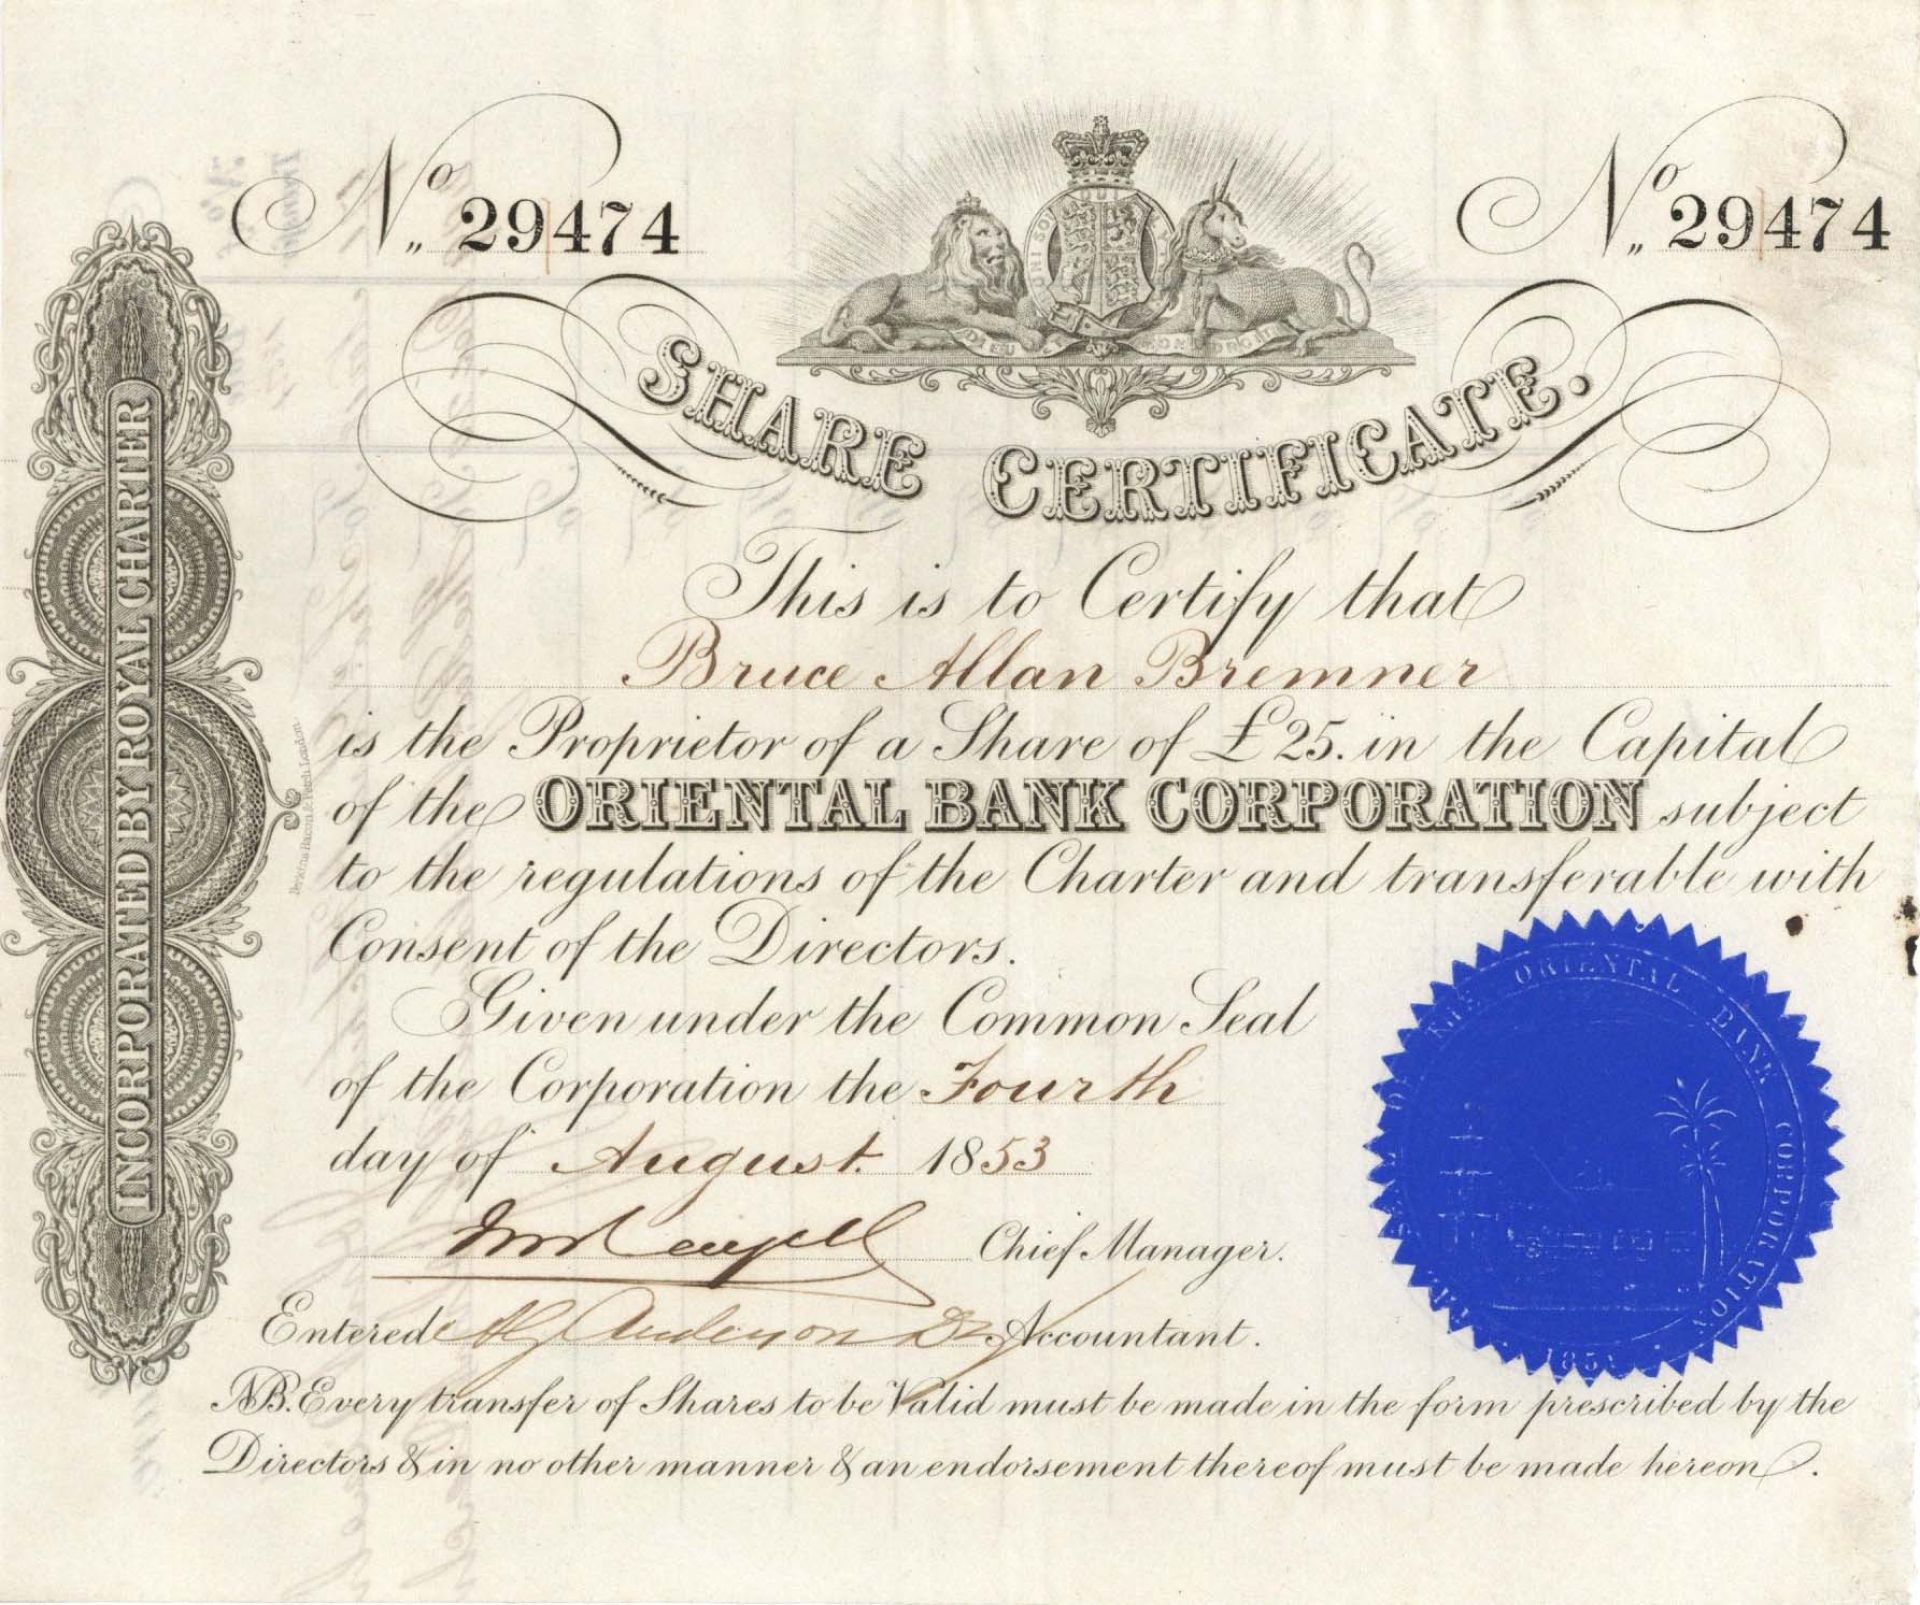 No 29474
No 29474
HONI SOIT
DIEU ET MON DROIT
SHARE CERTIFICATE.
INCORPORATED BY ROYAL CHARTER
This is to Certify that
Bruce Allan Bremner
is the Proprietor of a Share of £25. in the Capital
of the ORIENTAL BANK CORPORATION subject
to the regulations of the Charter and transferable with
Consent of the Directors.
Given under the Common Seal
of the Corporation the Fourth
day of August 1853
Chief Manager.
Entered Anderson Accountant.
NB. Every transfer of Shares to be Valid must be made in the form prescribed by the
Directors & in no other manner & an endorsement thereof must be made hereon.
Perkins, Bacon & Petch, London.
SEAL OF THE ORIENTAL BANK CORPORATION